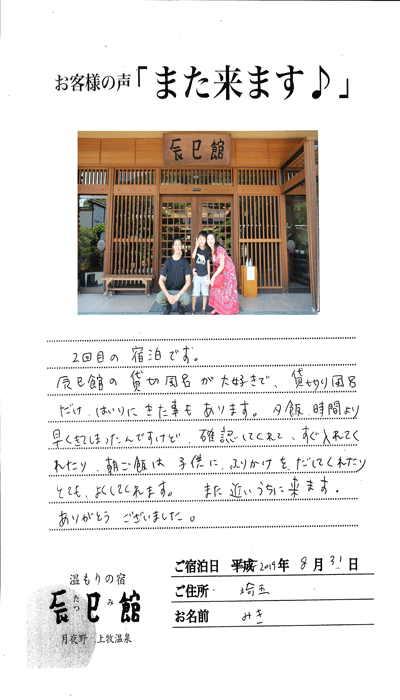 お客様の声「また来ます♪」
辰巳館
2回目の宿泊です。
辰巳館の貸切風呂が大好きで、貸切り風呂
だけ、はいりにきた事もあります。夕飯、時間より
早くきてしまったんですけど、確認してくれて、すぐ入れてく
れたり、朝ご飯は子供に、ふりかけを、だしてくれたり
とても、よくしてくれます。 また近いうちに来ます。
ありがとうございました。
温もりの宿
辰巳館
たつ み
月夜野 上牧温泉
ご宿泊日 平成 2019年 8月31日
ご住所 埼玉
お名前 みき